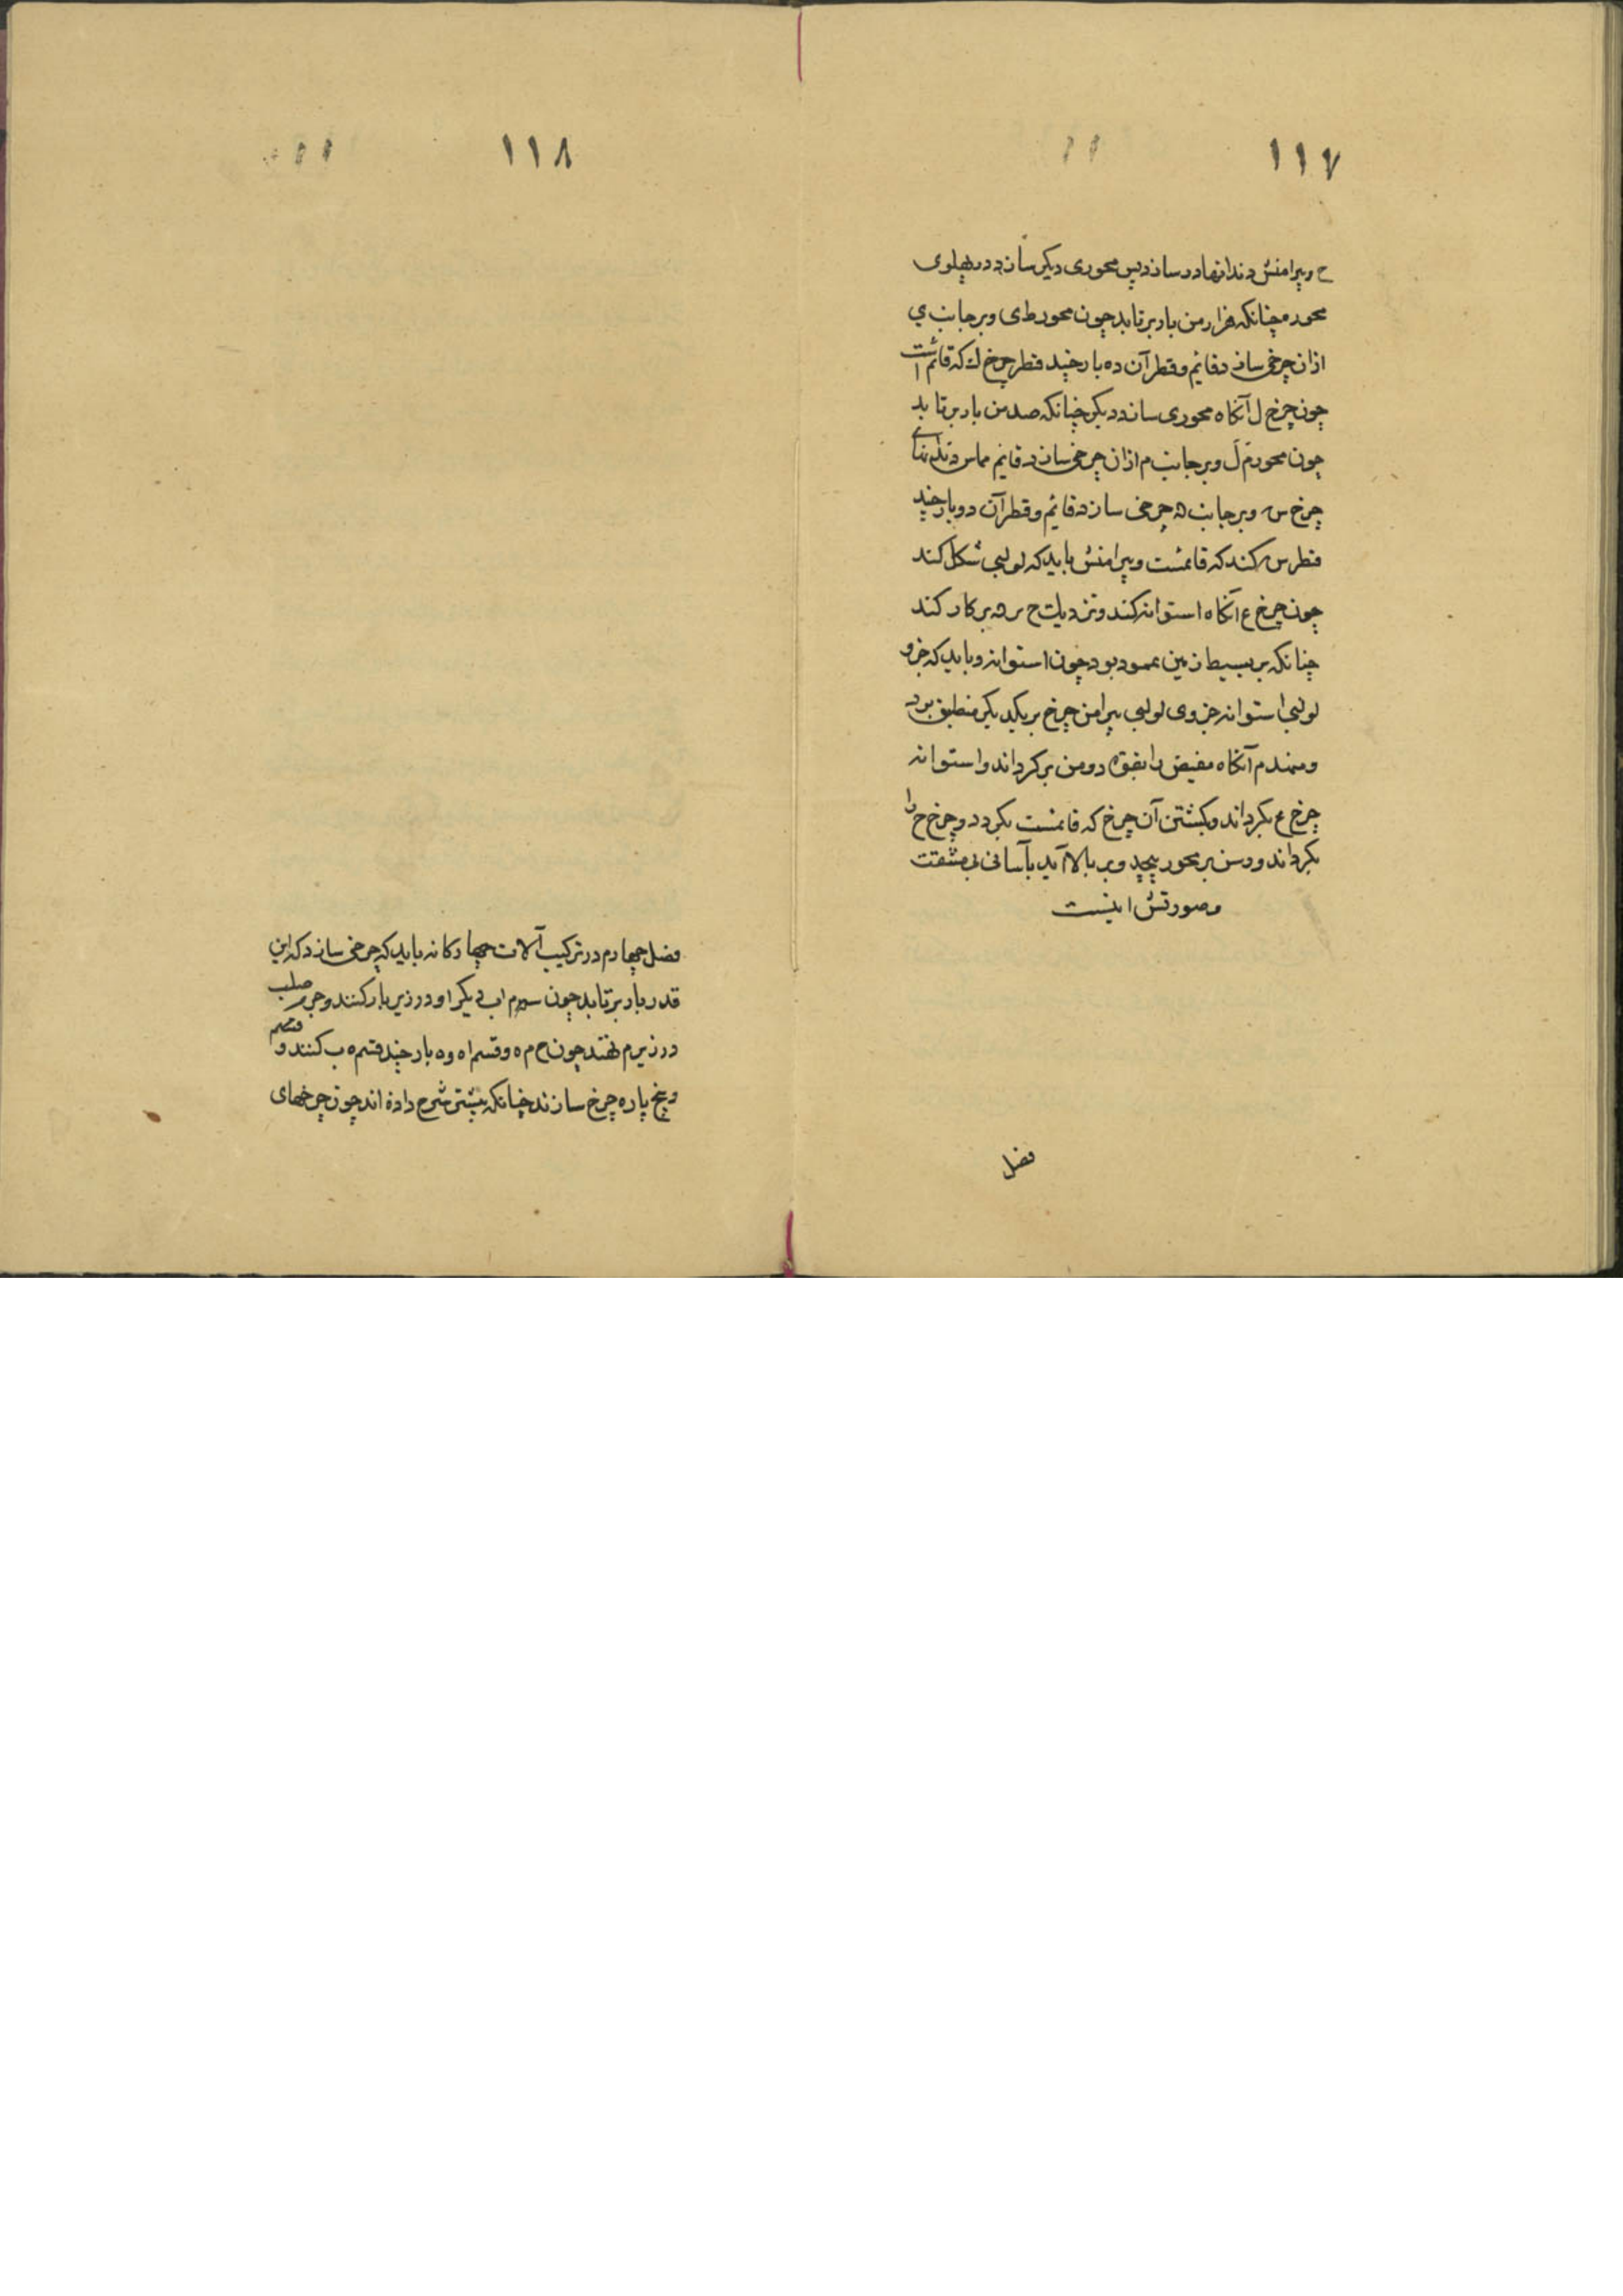 ۱۱۷
ح و پیرامنش دندانها در سازد پس محوری دیکر سازد در پهلوی
محور ه چنانکه هزار من بار برتابد چون محور ط ی و بر جانب ی
از ان چرخی سازد قائم و قطر آن ده بار چند قطر چرخ ک که قائم است
چون چرخ ل آنکاه محوری سازد دیکر چنانکه صد من بار برتابد
چون محور م ل و بر جانب م از ان چرخی سازد قایم مماس دندانهای
چرخ س و بر جانب ن چرخی سازد قائم و قطر آن دو بار چند
قطر س کند که قائمست و پیرامنش باید که لولبی شکل کند
چون چرخ ع آنکاه استوانه کند و نزدیک ح بر کار کند
چنانکه بر بسیط زمین عمود بود چون استوانه و باید که جزو
لولبی استوانه جزوی لولبی پیرامن چرخ بر یکدیکر منطبق بود
و مهندم آنکاه مقبض را بقوه دو من برکرداند و استوانه
چرخ ع بکرداند و بکشتن آن چرخ که قائمست بکردد و چرخ ح را
بکرداند و رسن بر محور پیچد و بر بالا آید بآسانی بی مشقت
و صورتش اینست
فصل
۱۱۸
فصل چهارم در ترکیب آلات چهارکانه باید که چرخی سازد که این
قدر بار برتابد چون اب دیکر او در زیر بار کنند و جرم صلب
در زیرم نهند چون ح م ه و قسم اه و ه بار چند قسم ه ب کنند و قسم
و پنج پاره چرخ سازند چنانکه پیشتر شرح داده اند چون چرخهای